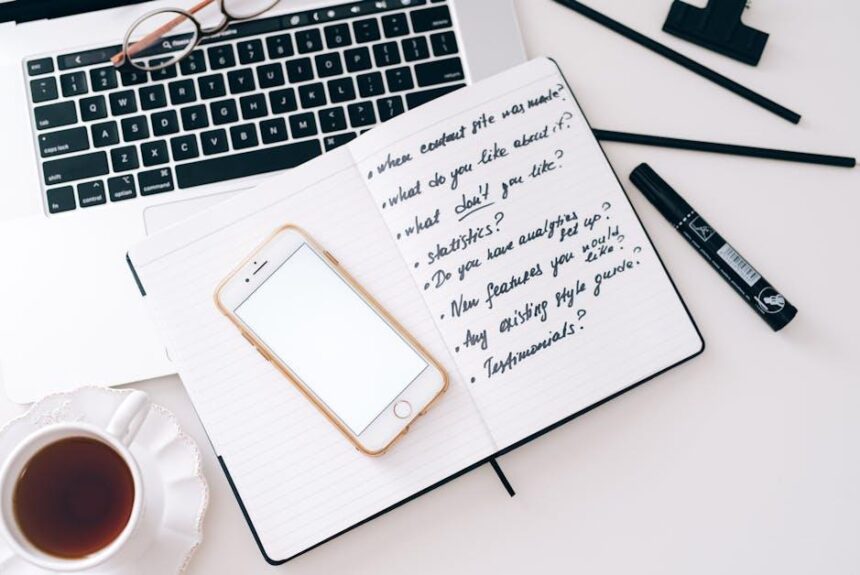 tab Q W E R T Y U I O P
caps lock A S D F G H J K L
shift Z X C V B N M
fn control option command
• when content site was made?
• what do you like about it?
• what don't you like?
• statistics?
• Do you have analytics
set up?
• New features you would
like?
• Any existing style guide?
• Testimonials?